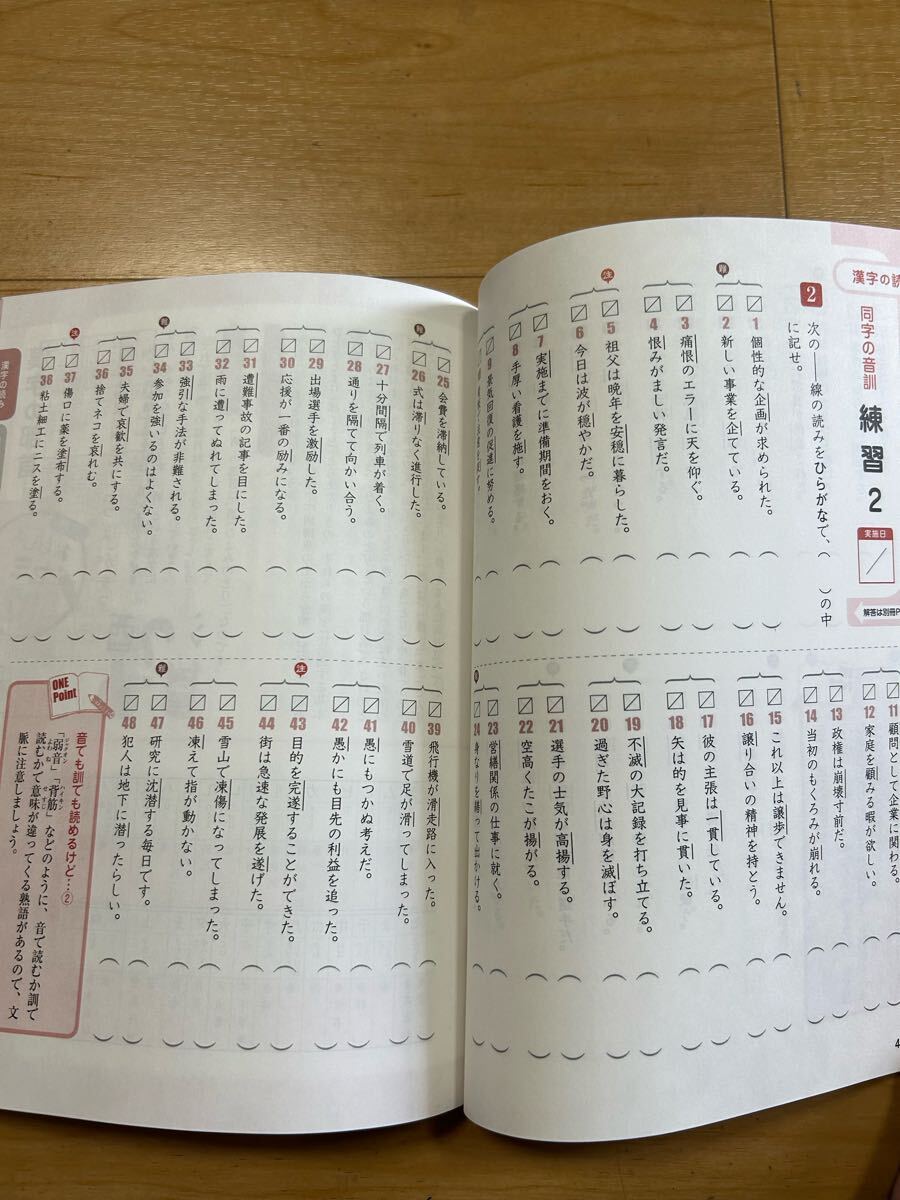 漢字の読
同字の音訓 練習2
実施日
解答は別冊P
2 次の――線の読みをひらがなで、( )の中
に記せ。
難
1 個性的な企画が求められた。
2 新しい事業を企てている。
3 痛恨のエラーに天を仰ぐ。
4 恨みがましい発言だ。
注
5 祖父は晩年を安穏に暮らした。
6 今日は波が穏やかだ。
7 実施までに準備期間をおく。
8 手厚い看護を施す。
9 景気回復の促進に努める。
11 顧問として企業に関わる。
12 家庭を顧みる暇が欲しい。
13 政権は崩壊寸前だ。
14 当初のもくろみが崩れる。
15 これ以上は譲歩できません。
16 譲り合いの精神を持とう。
17 彼の主張は一貫している。
18 矢は的を見事に貫いた。
19 不滅の大記録を打ち立てる。
20 過ぎた野心は身を滅ぼす。
21 選手の士気が高揚する。
22 空高くたこが揚がる。
23 営繕関係の仕事に就く。
24 身なりを繕って出かける。
4
漢字の読み
難
25 会費を滞納している。
26 式は滞りなく進行した。
27 十分間隔で列車が着く。
28 通りを隔てて向かい合う。
29 出場選手を激励した。
30 応援が一番の励みになる。
31 遭難事故の記事を目にした。
32 雨に遭ってぬれてしまった。
難
33 強引な手法が非難される。
34 参加を強いるのはよくない。
35 夫婦で哀歓を共にする。
36 捨てネコを哀れむ。
注
37 傷口に薬を塗布する。
36 粘土細工にニスを塗る。
39 飛行機が滑走路に入った。
40 雪道で足が滑ってしまった。
41 愚にもつかぬ考えだ。
42 愚かにも目先の利益を追った。
注
43 目的を完遂することができた。
44 街は急速な発展を遂げた。
45 雪山で凍傷になってしまった。
46 凍えて指が動かない。
難
47 研究に沈潜する毎日です。
48 犯人は地下に潜ったらしい。
ONE Point
音でも訓でも読めるけど…②
「弱音」「背筋」などのように、音で読むか訓で
読むかで意味が違ってくる熟語があるので、文
脈に注意しましょう。